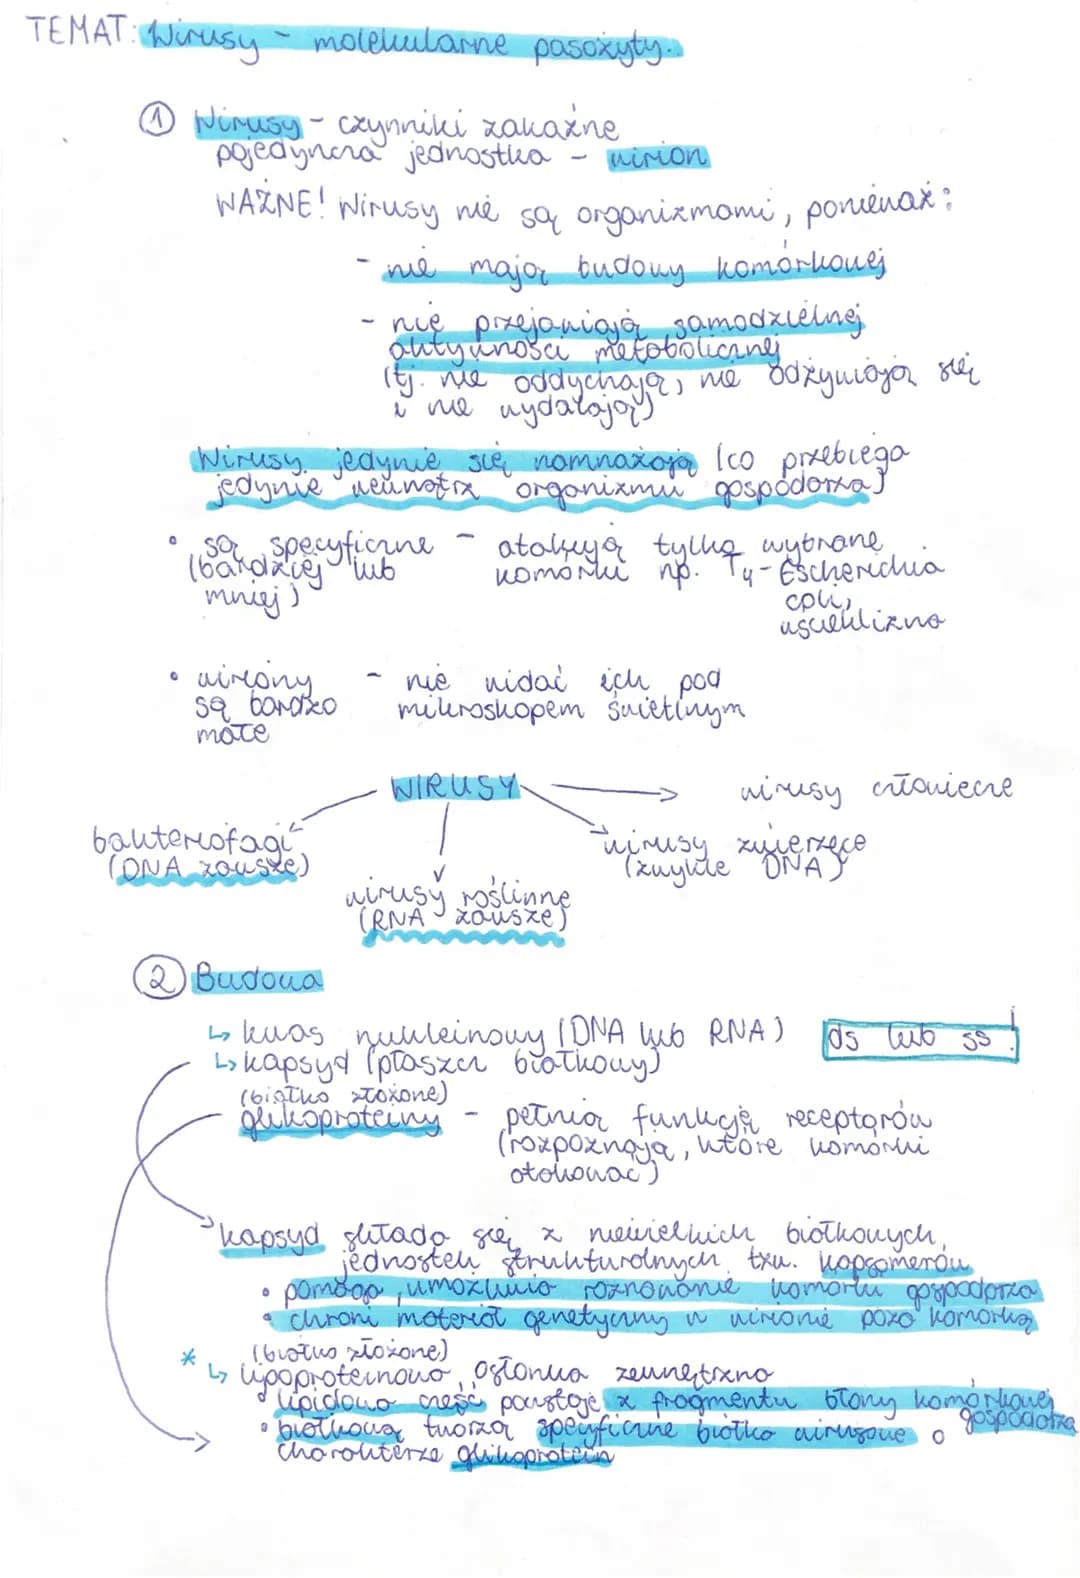 TEMAT: Wirusy - molekularne pasożyty.
① Wirusy - czynniki zakaźne
pojedyncza jednostka - wirion
WAŻNE! Wirusy nie są organizmami, ponieważ:
- nie mają budowy komórkowej
- nie przejawiają samodzielnej
aktywności metabolicznej
(tj. nie oddychają, nie odżywiają się
i nie wydalają)
Wirusy jedynie się namnażają (co przebiega
jedynie wewnątrz organizmu gospodarza)
• są specyficzne - atakują tylko wybrane
(bardziej lub komórki np. T4 - Escherichia
mniej) coli,
wścieklizna
• wiriony - nie widać ich pod
są bardzo mikroskopem świetlnym
małe
WIRUSY → wirusy człowiecze
bakteriofagi wirusy zwierzęce
(DNA zawsze) (zwykle DNA)
wirusy roślinne
(RNA zawsze)
② Budowa
↳ kwas nukleinowy (DNA lub RNA) ds lub ss!
↳ kapsyd (płaszcz białkowy)
(białko złożone)
glikoproteiny - pełnią funkcję receptorów
(rozpoznają, które komórki
atakować)
kapsyd składa się z niewielkich białkowych
jednostek strukturalnych tzw. kapsomerów
• pomaga, umożliwia rozpoznanie komórki gospodarza
• chroni materiał genetyczny w wirionie poza komórką
(białko złożone)
* ↳ lipoproteinowa osłonka zewnętrzna
• lipidowa część powstaje z fragmentu błony komórkowej
gospodarza
• białkową tworzą specyficzne białka wirusowe o
charakterze glikoprotein